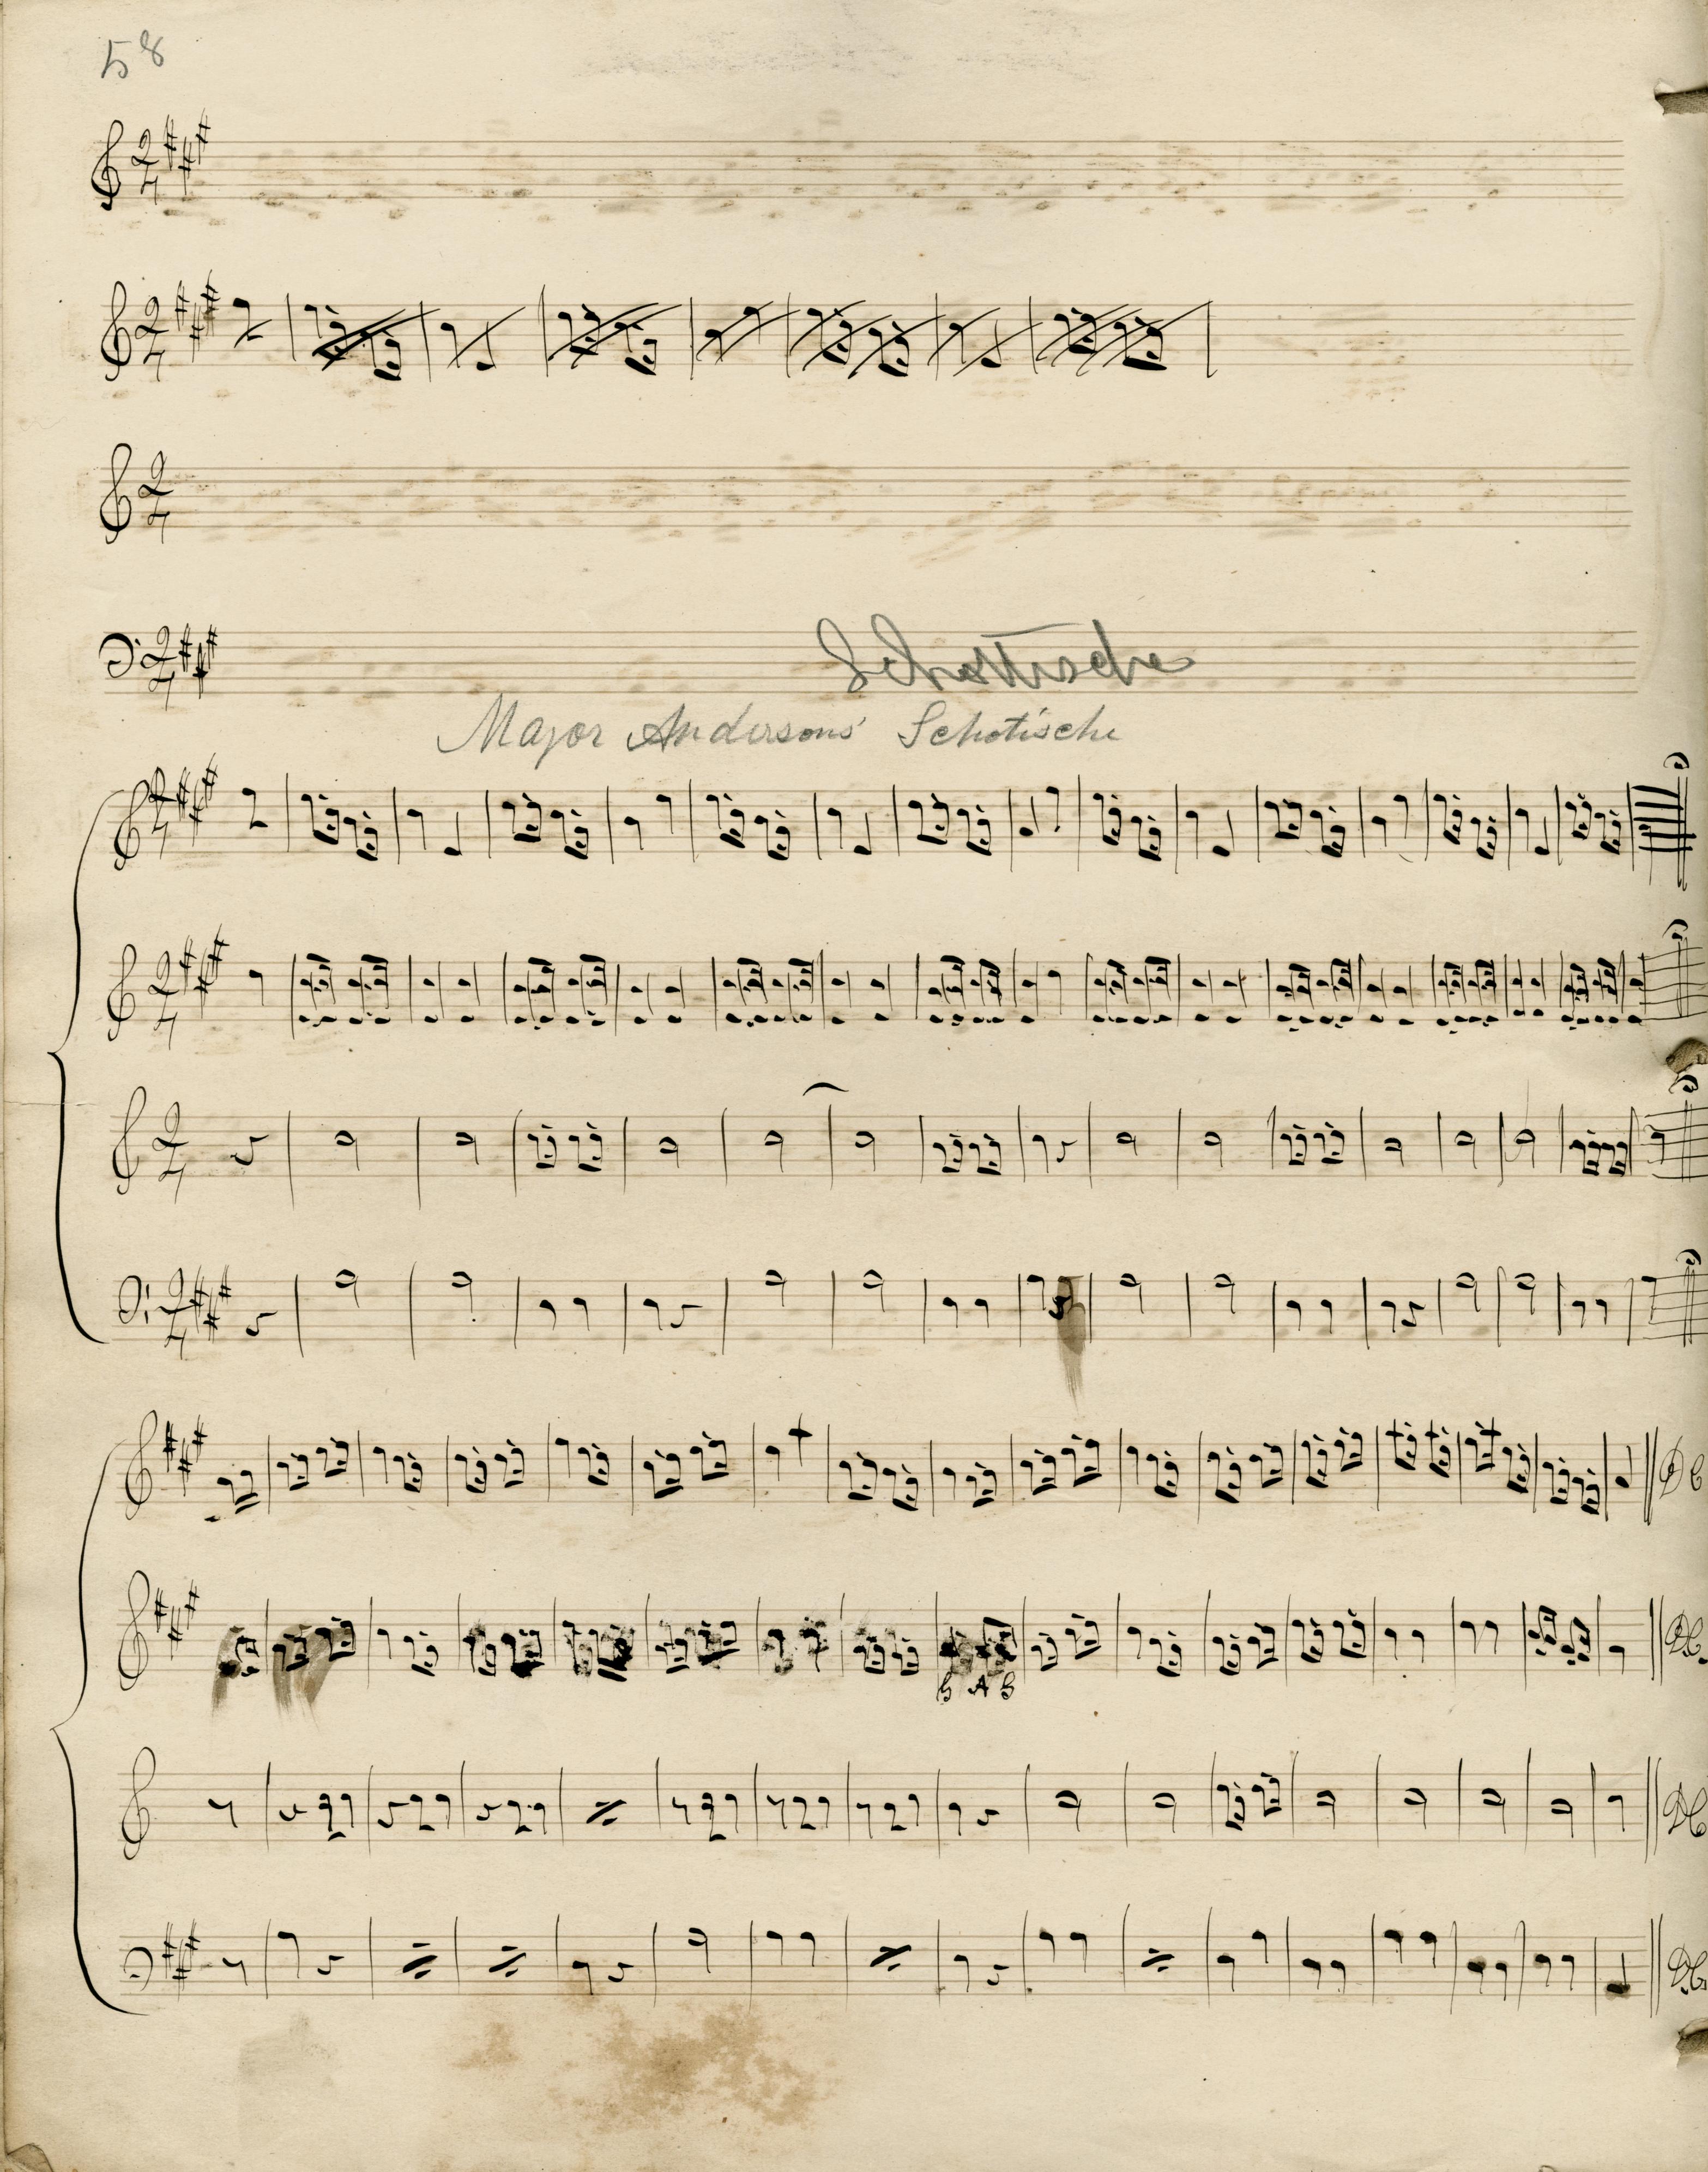 58
Schottische
Major Andersons' Schotische
B A B
D C
D.C.
D.C.
D.C.